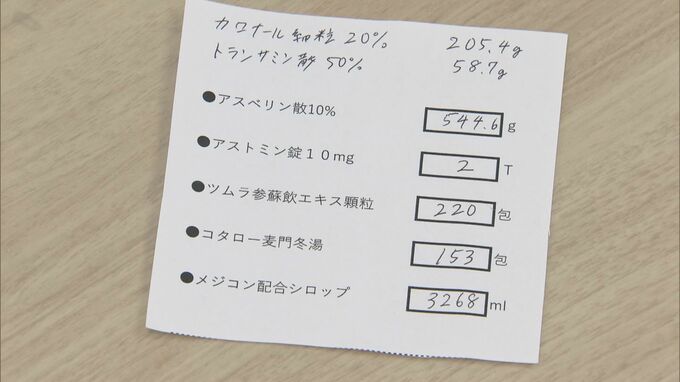 カロナール細粒20% 205.4g
トランサミン散50% 58.7g
●アスベリン散10% 544.6 g
●アストミン錠10mg 2 T
●ツムラ参蘇飲エキス顆粒 220 包
●コタロー麦門冬湯 153 包
●メジコン配合シロップ 3268 ml